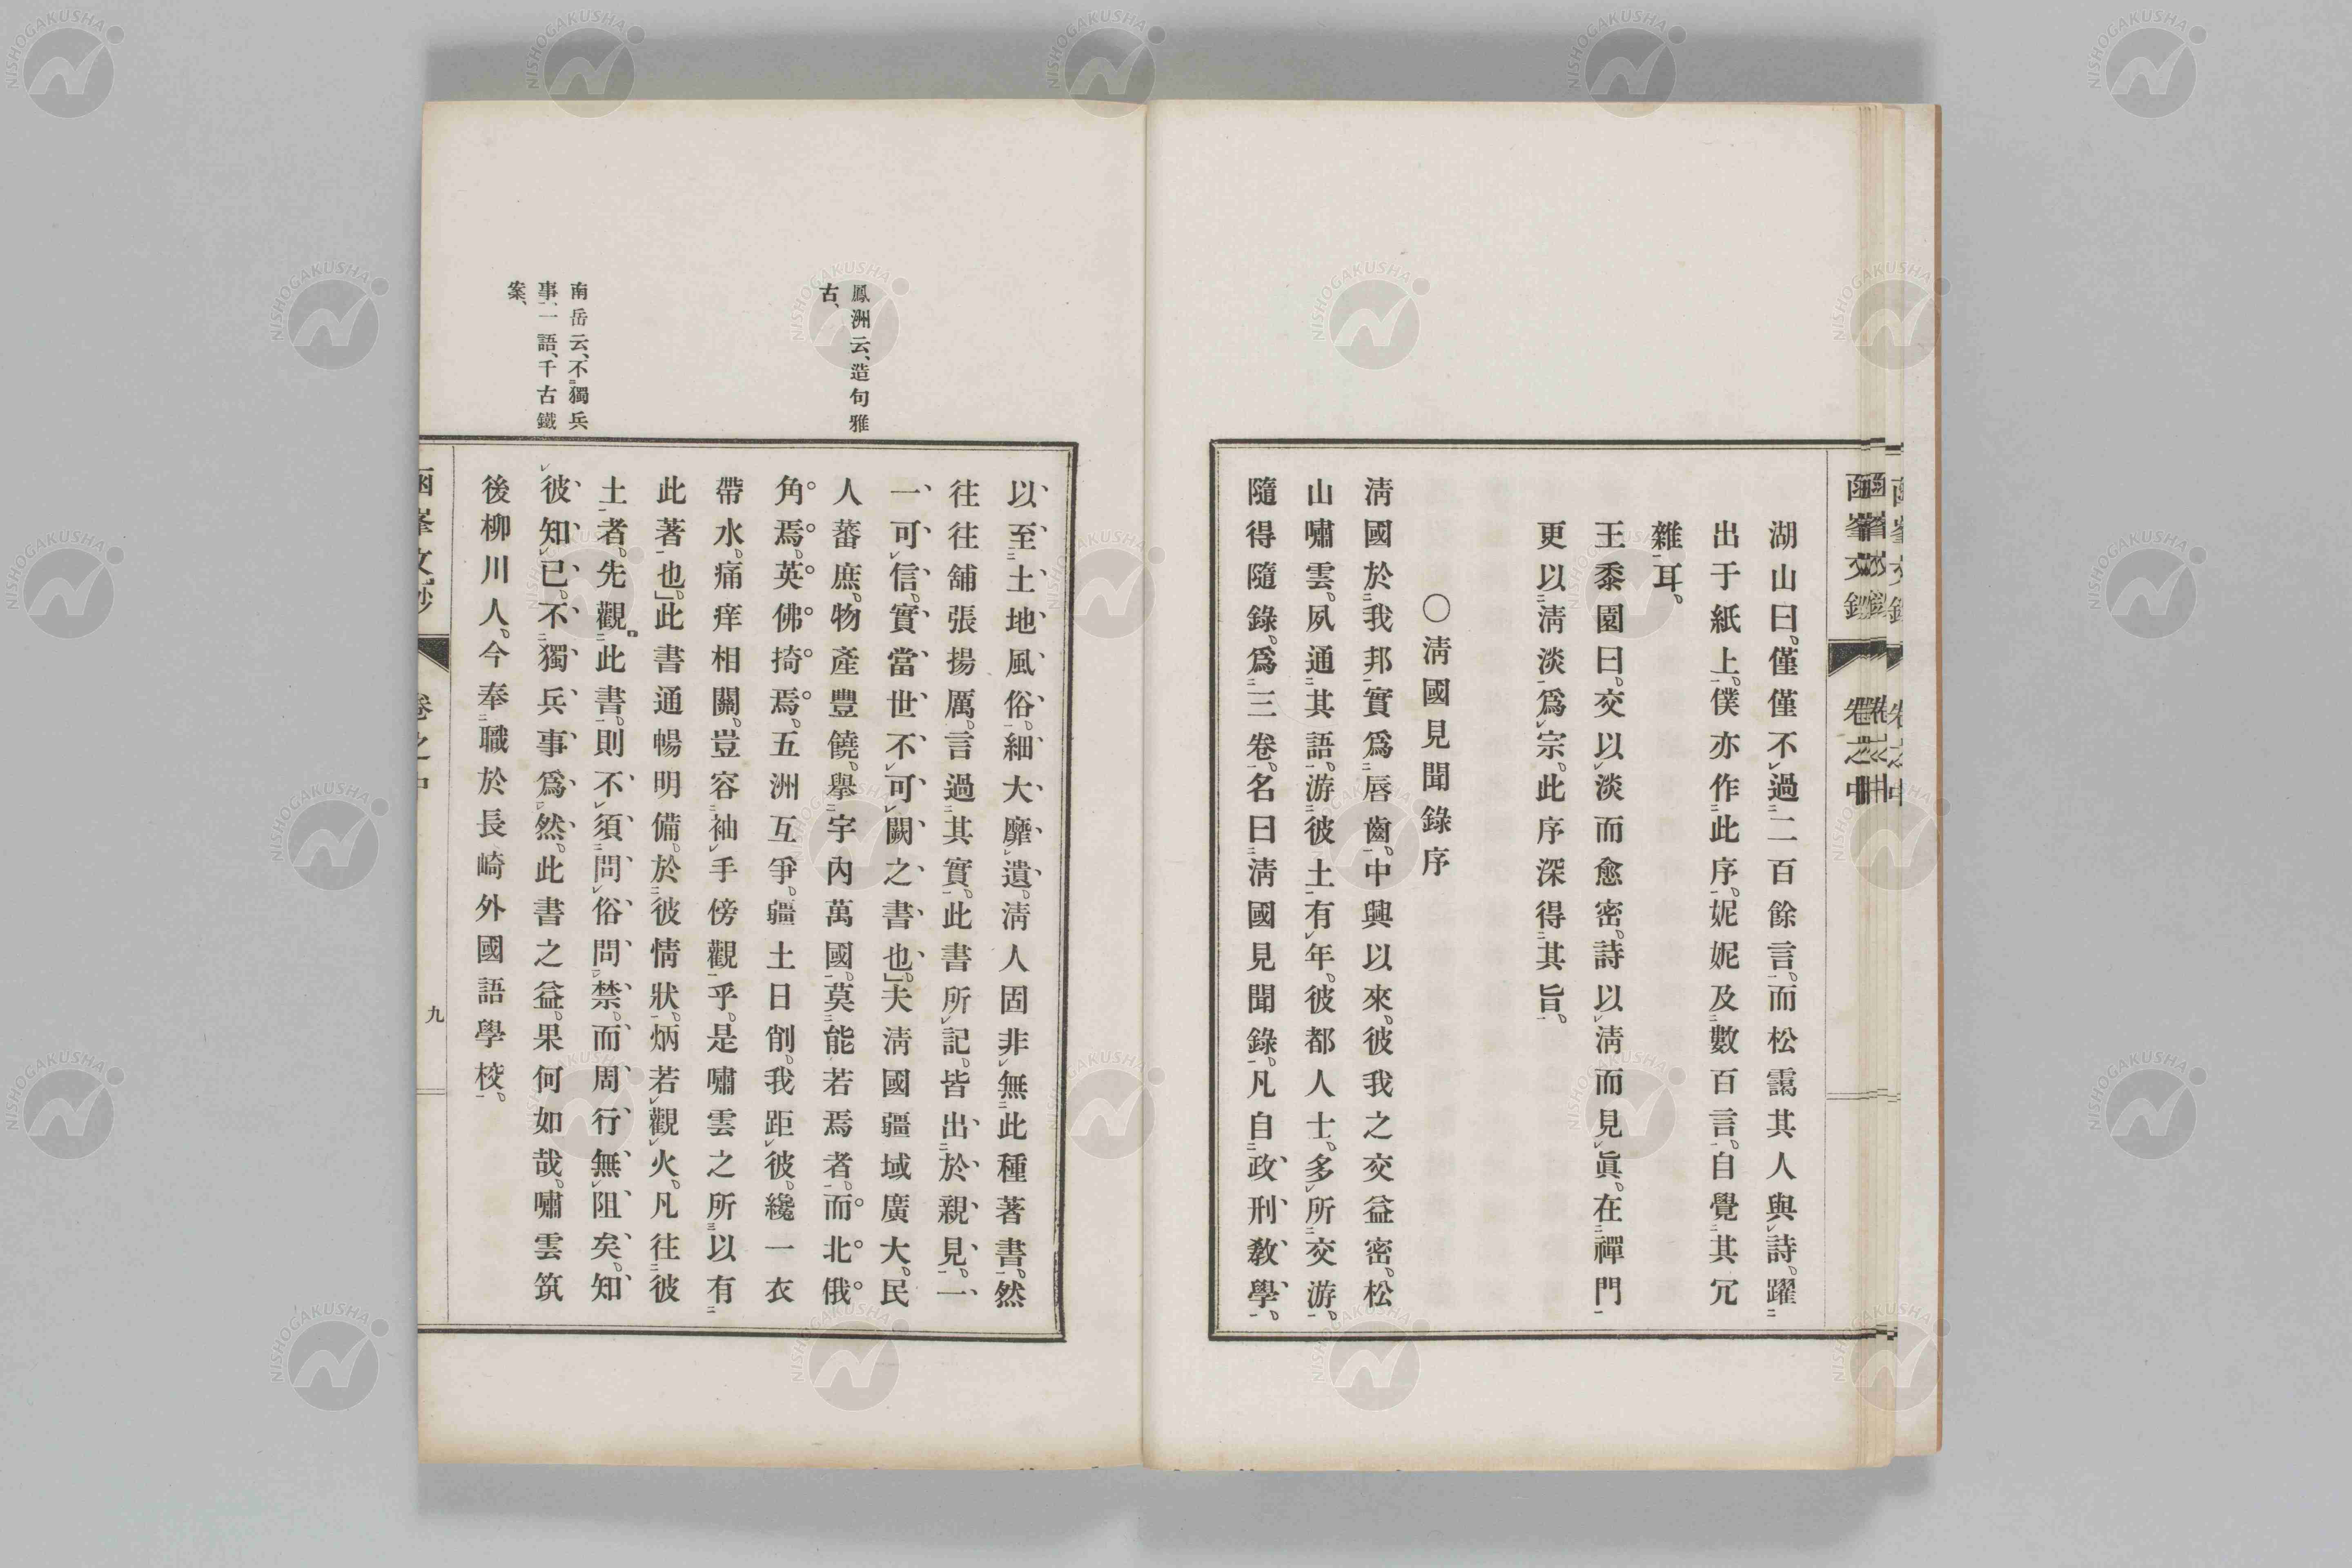 湖山曰。僅僅不過二百餘言。而松靄其人與詩。躍
出于紙上。僕亦作此序。妮妮及數百言。自覺其冗
雜耳。
王黍園曰。交以淡而愈密。詩以淸而見眞。在禪門
更以淸淡爲宗。此序深得其旨。
〇淸國見聞錄序
淸國於我邦實爲唇齒。中興以來。彼我之交益密。松
山嘯雲。夙通其語。游彼土有年。彼都人士。多所交游。
隨得隨錄。爲三卷。名曰淸國見聞錄。凡自政刑敎學。
以至土地風俗。細大靡遺。淸人固非無此種著書。然
往往舖張揚厲。言過其實。此書所記。皆出於親見。一
一可信。實當世不可闕之書也。」夫淸國疆域廣大。民
人蕃庶。物產豐饒。擧宇內萬國。莫能若焉者。而北俄
角焉。英佛掎焉。五洲互爭。疆土日削。我距彼。纔一衣
帶水。痛痒相關。豈容袖手傍觀乎。是嘯雲之所以有
此著也。」此書通暢明備。於彼情狀。炳若觀火。凡往彼
土者。先觀此書。則不須問俗問禁。而周行無阻矣。知
彼知已。不獨兵事爲然。此書之益。果何如哉。嘯雲筑
後柳川人。今奉職於長崎外國語學校。
鳳洲云、造句雅
古、
南岳云、不獨兵
事一語、千古鐵
案、
卷之中
九
NISHOGAKUSHA